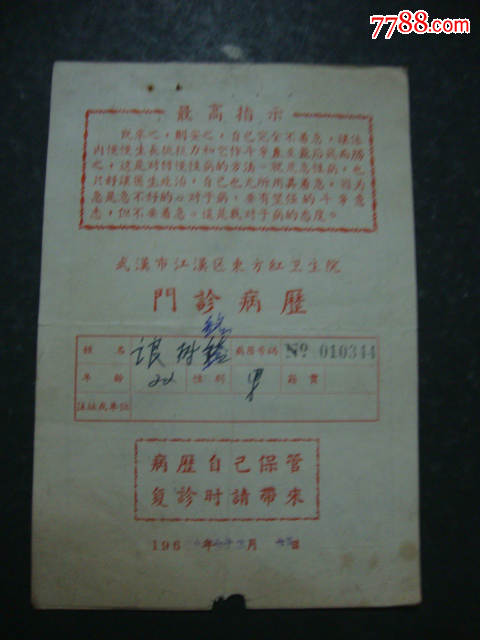 7788.com
最高指示
既来之，則安之，自己完全不着急，讓体
内慢慢生長抵抗力和它作斗争直至最后战而勝
之，这是对付慢性病的方法。就是急性病，也
只好讓医生处治，自己也无所用其着急，因为
急是急不好的。对于病，要有堅强的斗争意
志，但不要着急。這是我对于病的态度。
武漢市江漢区東方紅卫生院
門診病歷
姓名 病歷号碼 № 010344
年齡 性别 男 籍貫
住址或单位
病歷自己保管
复診时請帶來
196 年 月 日